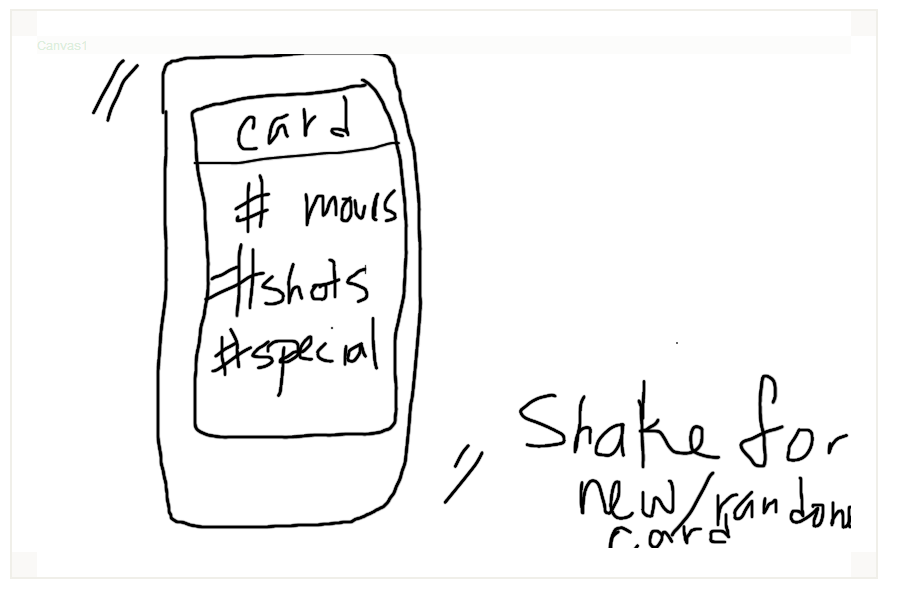 Canvas1
card
# moves
#shots
#special
Shake for
new/random
card